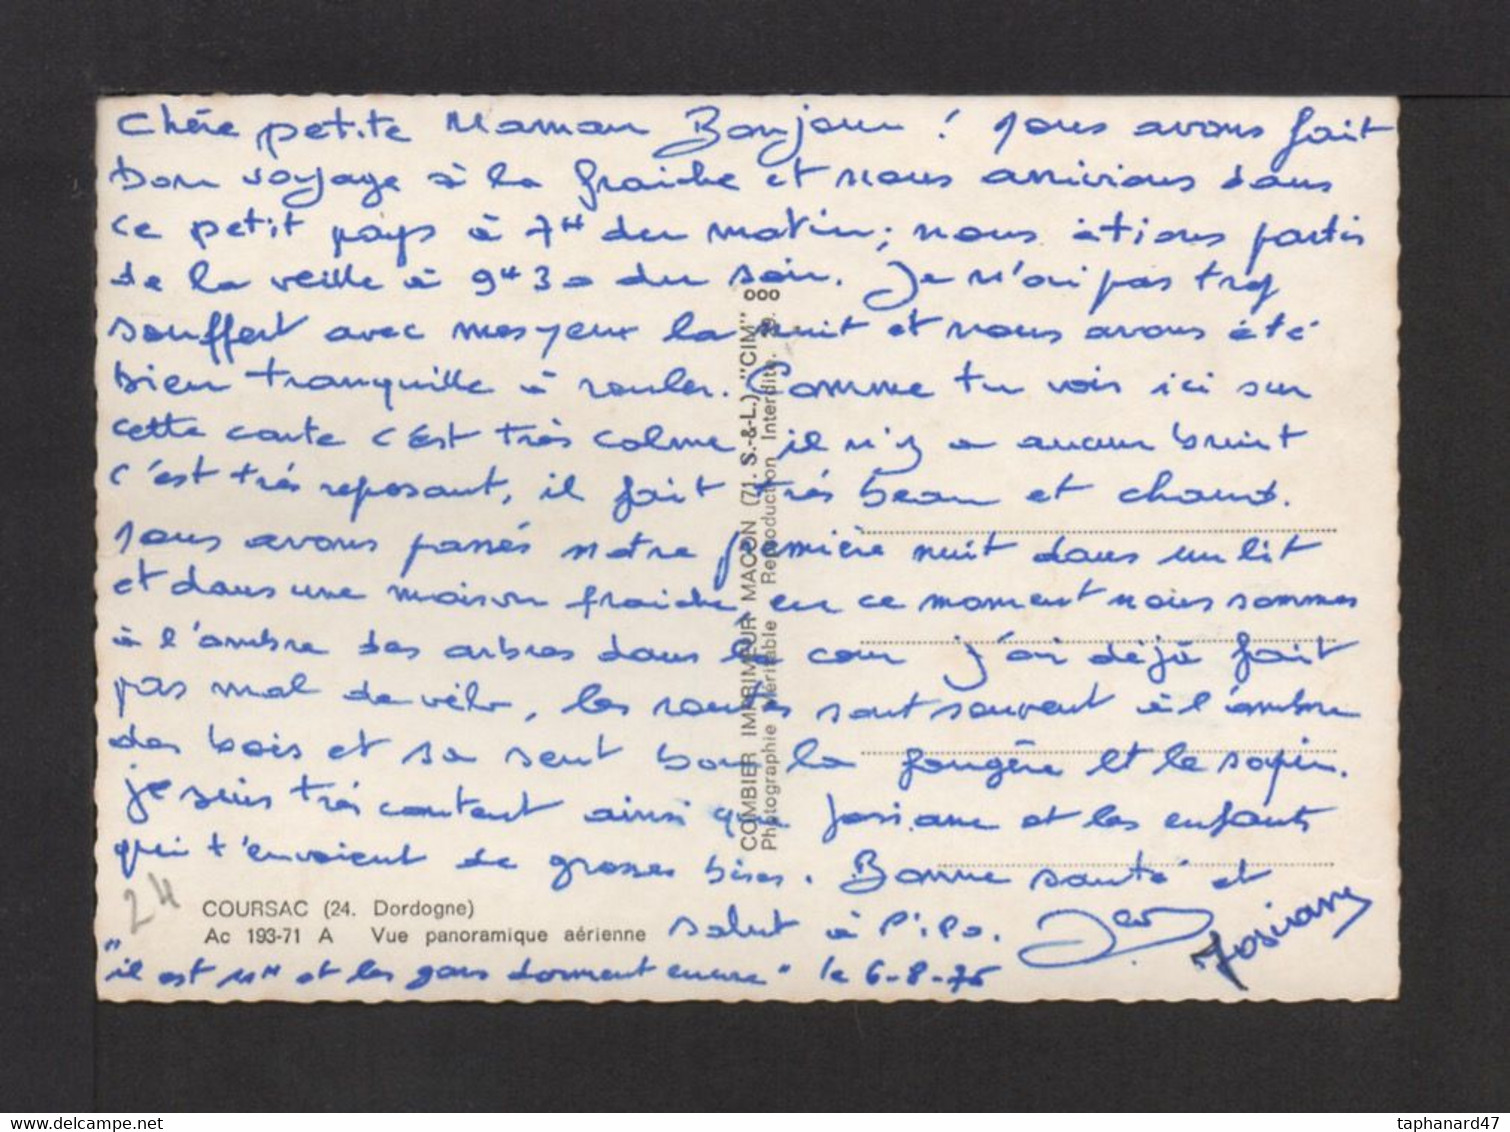 Chère petite Maman Bonjour ! Nous avons fait
bon voyage à la fraiche et nous arrivions dans
ce petit pays à 7H du matin ; nous étions partis
de la veille à 9H30 du soir. Je n'ai pas trop
souffert avec mes yeux la nuit et nous avons été
bien tranquille à rouler. Comme tu vois ici sur
cette carte c'est très calme il n'y a aucun bruit
c'est très reposant, il fait très beau et chaud.
Nous avons passés notre première nuit dans un lit
et dans une maison fraiche en ce moment nous sommes
à l'ombre des arbres dans la cour j'ai déjà fait
pas mal de vélo, les routes sont souvent à l'ombre
des bois et sa sent bon la fougère et le sapin.
je suis très content ainsi que Josiane et les enfants
qui t'envoient de grosses bises. Bonne santé et
salut à Pipo.
Josiane
"il est 11H et les gars dorment encore" le 6-8-76
24
COURSAC (24. Dordogne)
Ac 193-71 A Vue panoramique aérienne
COMBIER IMPRIMEUR MACON (71. S.-&-L.) "CIM" ooo
Photographie véritable Reproduction Interdite.
delcampe.net
taphanard47